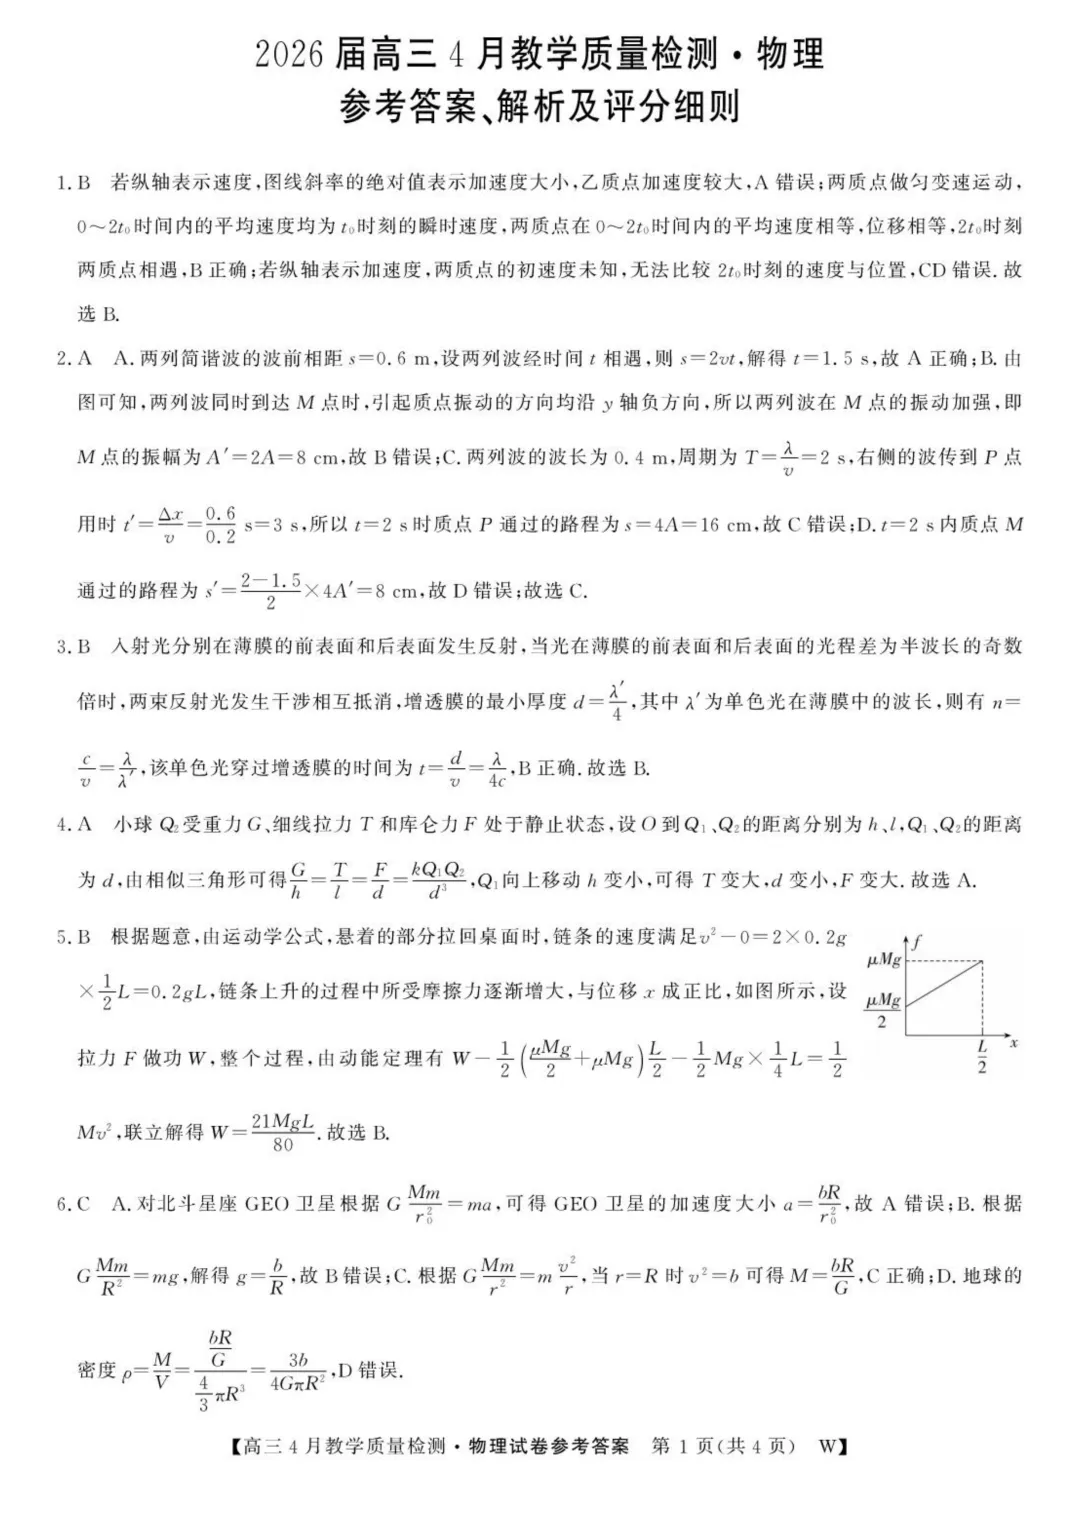 2026 届高三 4 月教学质量检测·物理
参考答案、解析及评分细则
1. B 若纵轴表示速度,图线斜率的绝对值表示加速度大小,乙质点加速度较大,A 错误;两质点做匀变速运动,
0～2t₀时间内的平均速度均为 t₀时刻的瞬时速度,两质点在 0～2t₀时间内的平均速度相等,位移相等,2t₀时刻
两质点相遇,B 正确;若纵轴表示加速度,两质点的初速度未知,无法比较 2t₀时刻的速度与位置,CD 错误. 故
选 B.
2. A A. 两列简谐波的波前相距 s=0.6 m,设两列波经时间 t 相遇,则 s=2vt,解得 t=1.5 s,故 A 正确;B. 由
图可知,两列波同时到达 M 点时,引起质点振动的方向均沿 y 轴负方向,所以两列波在 M 点的振动加强,即
M 点的振幅为 A′=2A=8 cm,故 B 错误;C. 两列波的波长为 0.4 m,周期为 T=λ/v=2 s,右侧的波传到 P 点
用时 t′=Δx/v=0.6/0.2 s=3 s,所以 t=2 s 时质点 P 通过的路程为 s=4A=16 cm,故 C 错误;D. t=2 s 内质点 M
通过的路程为 s′=(2-1.5)/2×4A′=8 cm,故 D 错误;故选 C.
3. B 入射光分别在薄膜的前表面和后表面发生反射,当光在薄膜的前表面和后表面的光程差为半波长的奇数
倍时,两束反射光发生干涉相互抵消,增透膜的最小厚度 d=λ′/4,其中 λ′为单色光在薄膜中的波长,则有 n=
c/v=λ/λ′,该单色光穿过增透膜的时间为 t=d/v=λ/4c,B 正确. 故选 B.
4. A 小球 Q₂受重力 G、细线拉力 T 和库仑力 F 处于静止状态,设 O 到 Q₁、Q₂的距离分别为 h、l,Q₁、Q₂的距离
为 d,由相似三角形可得 G/h=T/l=F/d=kQ₁Q₂/d³,Q₁向上移动 h 变小,可得 T 变大,d 变小,F 变大. 故选 A.
5. B 根据题意,由运动学公式,悬着的部分拉回桌面时,链条的速度满足v²-0=2×0.2g
×1/2L=0.2gL,链条上升的过程中所受摩擦力逐渐增大,与位移 x 成正比,如图所示,设
拉力 F 做功 W,整个过程,由动能定理有 W-1/2(μMg/2+μMg)L/2-1/2Mg×1/4L=1/2
Mv²,联立解得 W=21MgL/80. 故选 B.
f
μMg
μMg/2
L/2
x
6. C A. 对北斗星座 GEO 卫星根据 G Mm/r₀²=ma,可得 GEO 卫星的加速度大小 a=bR/r₀²,故 A 错误;B. 根据
G Mm/R²=mg,解得 g=b/R,故 B 错误;C. 根据 G Mm/r²=m v²/r,当 r=R 时 v²=b 可得 M=bR/G,C 正确;D. 地球的
密度 ρ=M/V=(bR/G)/(4/3 πR³)=3b/4GπR²,D 错误.
【高三 4 月教学质量检测·物理试卷参考答案 第 1 页(共 4 页) W】